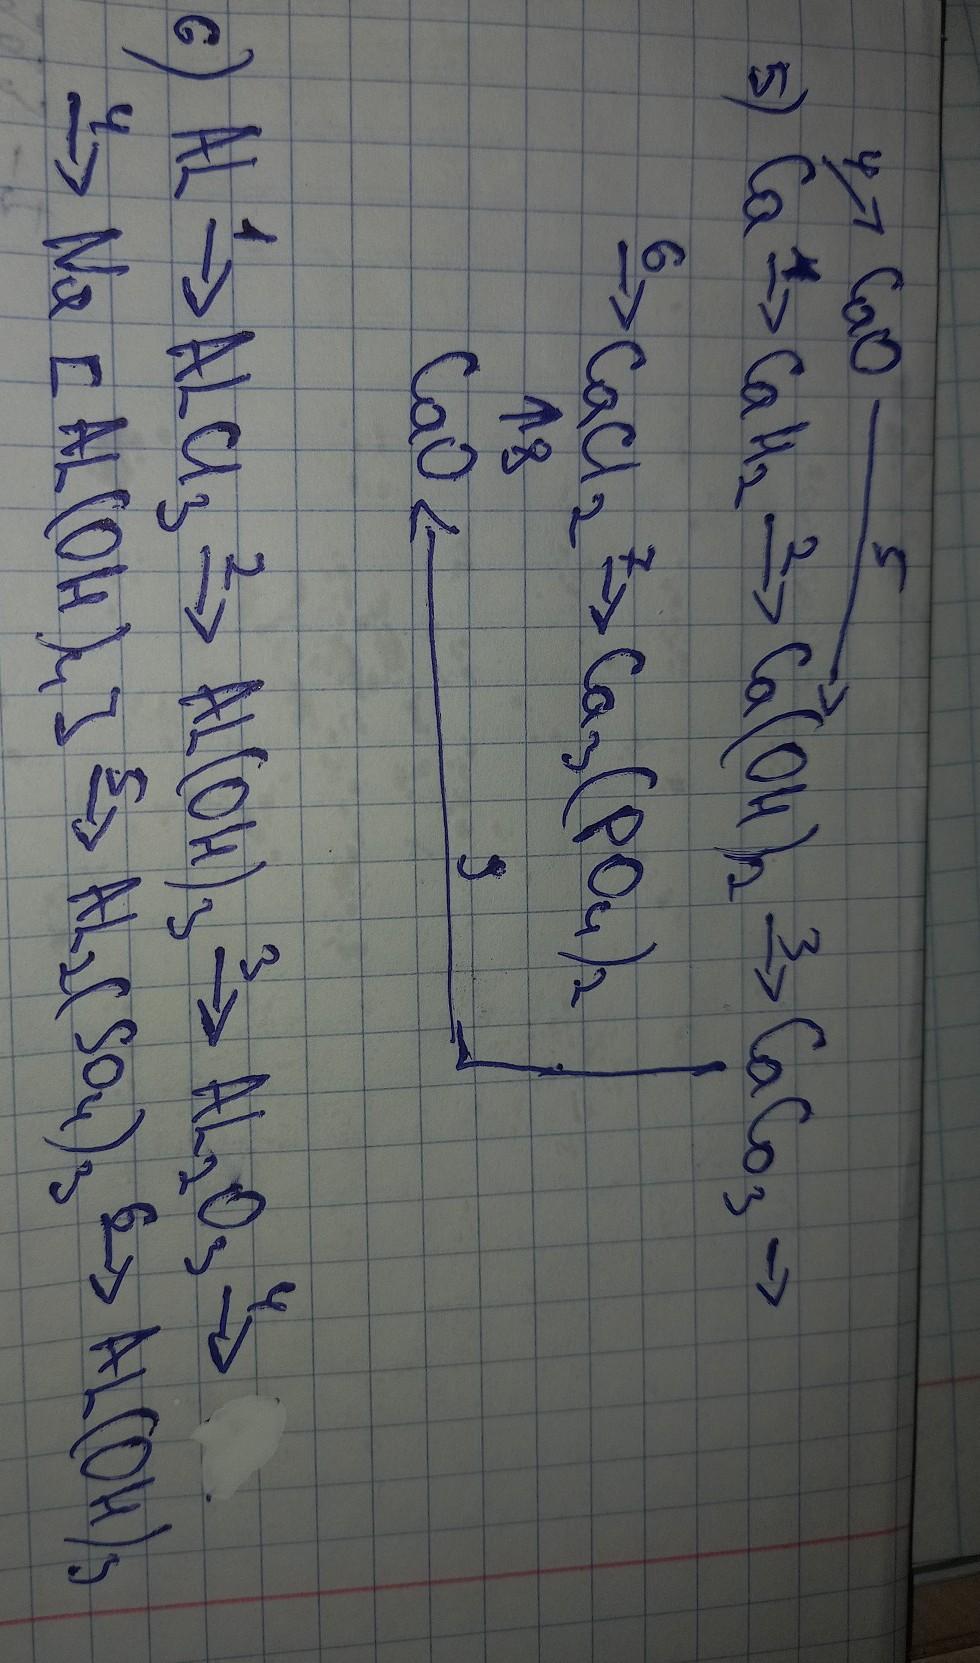 4↗ CaO 5→
5) Ca 1→ CaH2 2→ Ca(OH)2 3→ CaCo3 →
6→ CaCl2 7→ Ca3(PO4)2
↑8 9
CaO ←
6) AL 1→ ALCl3 2→ AL(OH)3 3→ AL2O3 4→
4→ Na[AL(OH)4] 5→ AL2(SO4)3 6→ AL(OH)3